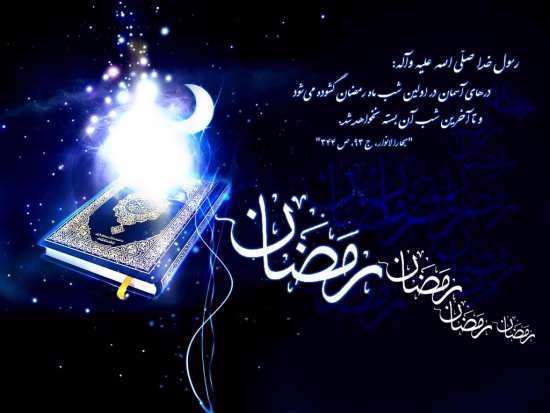 رسول خدا صلّی الله علیه وآله:
درهای آسمان در اولین شب ماه رمضان گشوده می‌شود
و تا آخرین شب آن بسته نخواهد شد.
"بحارالانوار، ج ۹۳، ص ۳۴۴"
رمضان
رمضان
رمضان
رمضان